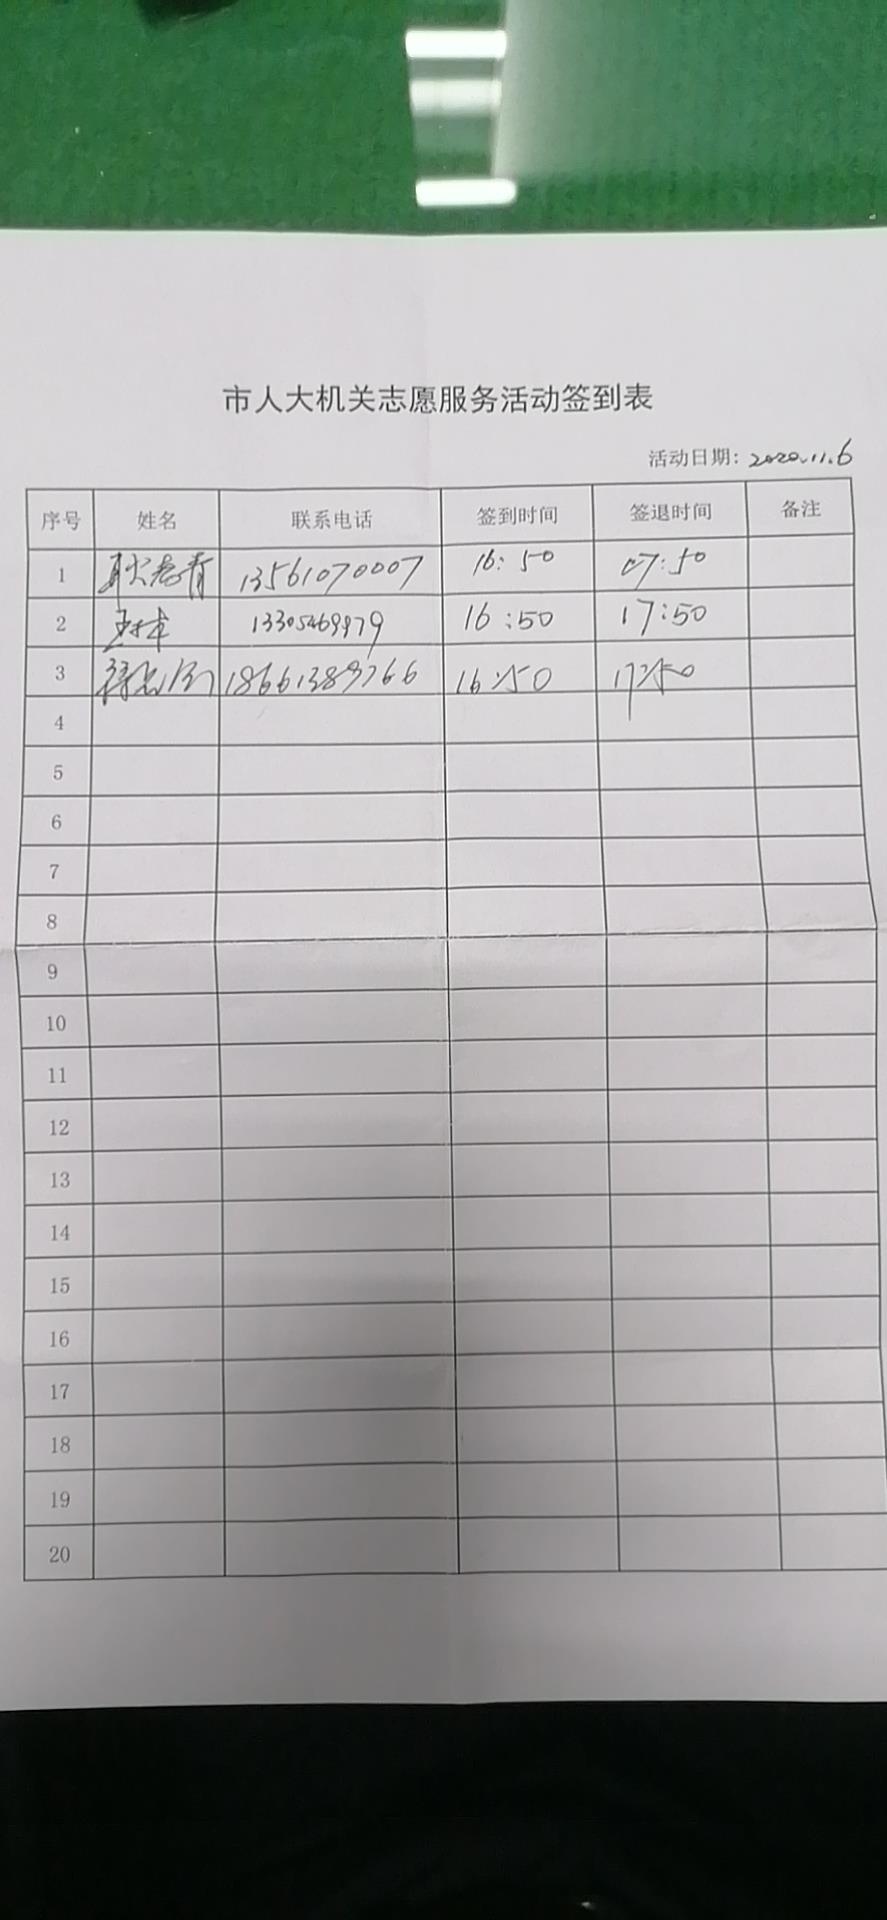 市人大机关志愿服务活动签到表
活动日期: 2020.11.6
序号 姓名 联系电话 签到时间 签退时间 备注
1 13561070007 16:50 17:50
2 16:50 17:50
3 18661389766 16:50 17:50
4
5
6
7
8
9
10
11
12
13
14
15
16
17
18
19
20